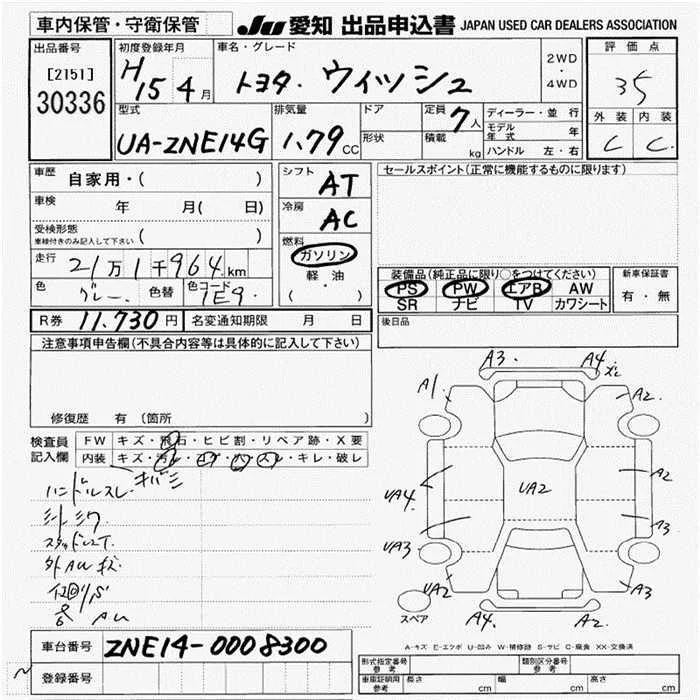 車内保管・守衛保管
JU 愛知 出品申込書 JAPAN USED CAR DEALERS ASSOCIATION
出品番号
[2151]
30336
初度登録年月
H15 4月
車名・グレード
トヨタ・ウィッシュ
2WD
・
4WD
評価点
35
外装 内装
C C
型式
UA-ZNE14G
排気量
1.79 CC
ドア
形状
定員 7人
積載 kg
ディーラー・並行
モデル年式 年
ハンドル 左・右
車歴 自家用・( )
車検 年 月( 日)
受検形態
車検付きのみ記入して下さい ( )
走行 21万1千964km
色 グレー 色替 色コード 1E9
シフト AT
冷房 AC
燃料
ガソリン
軽油
( ・ )
セールスポイント(正常に機能するものに限ります)
装備品(純正品に限り○をつけてください)
PS PW エアB AW
SR ナビ TV カワシート
新車保証書
有・無
R券 11,730円 名変通知期限 月 日
後日品
注意事項申告欄(不具合内容等は具体的に記入して下さい)
修復歴 有 (箇所 )
検査員記入欄
FW キズ・飛石・ヒビ割・リペア跡・X要
内装 キズ・汚レ・コゲ・穴・スレ・キレ・破レ
ハンドルスレ キバミ
外AWキズ
A3. A4
A1. A2.
A2
UA4. UA2
A3
UA3
UA2 A3
A4. A2.
スペア
A-キズ E-エクボ U-凹み W-補修跡 S-サビ C-腐食 XX-交換済
車台番号 ZNE14-0008300
登録番号
型式指定番号 参考
類別区分番号 参考
車庫証明用 参考 長さ cm 幅 cm 高さ cm